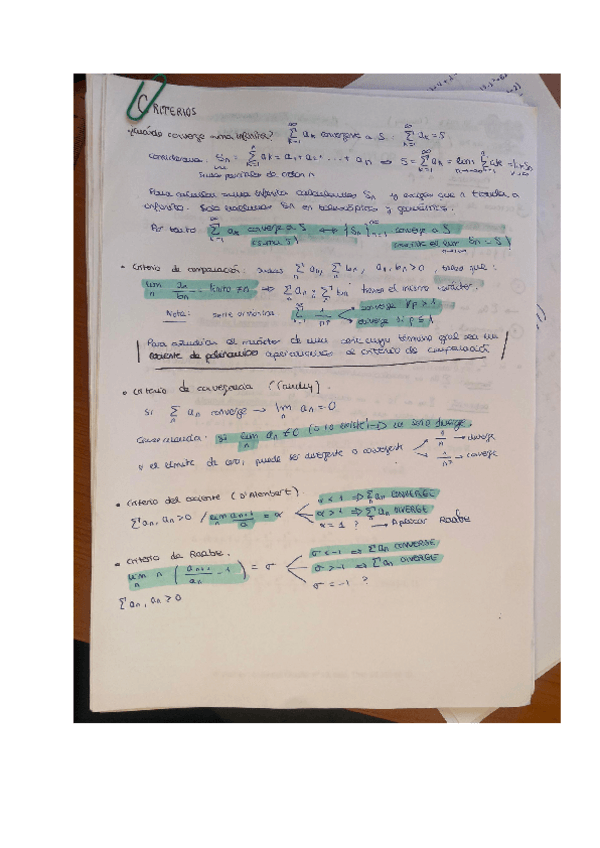 CRITERIOS
¿Cuándo converge suma infinita? ∞∑k=1 ak converge a S : ∞∑k=1 ak = S
Consideramos Sn = n∑k=1 ak = a1+a2+...+an ⇒ S = ∞∑k=1 an = lim n→∞ n∑k=1 ak = lim n→∞ Sn
Sumas parciales de orden n
Para estudiar suma infinita calculamos Sn y exigimos que n tienda a
infinito. Solo podemos Sn en telescópicas y geométricas.
Por tanto: ∞∑k=1 ak converge a S ⟷ {Sn}∞n=1 converge a S
(suma S) (existe el lim n→∞ Sn = S)
• Criterio de comparación. Sean ∑n an, ∑n bn, an, bn>0, tales que:
lim n an/bn finito ≠ 0 ⇒ ∑n an y ∑n bn tienen el mismo carácter.
Nota: serie armónica ∞∑n=1 1/n^p
converge ∀p>1
converge si p≤1
Para estudiar el carácter de una serie cuyo término gral sea un
cociente de polinomios aplicaremos el criterio de comparación
• Criterio de convergencia (Cauchy).
Si ∑n an converge → lim n an = 0
Consecuencia: si lim n an ≠ 0 (o no existe) → la serie diverge.
Si el límite da cero, puede ser divergente o convergente
1/n → diverge
1/n² → converge
• Criterio del cociente (D'Alembert)
∑an, an>0 / lim n an+1/an = α
α < 1 ⇒ ∑n an CONVERGE
α > 1 ⇒ ∑n an DIVERGE
α = 1 ? → Aplicar Raabe
• Criterio de Raabe.
lim n n (an+1/an - 1) = σ
σ < -1 ⇒ ∑an CONVERGE
σ > -1 ⇒ ∑an DIVERGE
σ = -1 ?
∑an, an>0